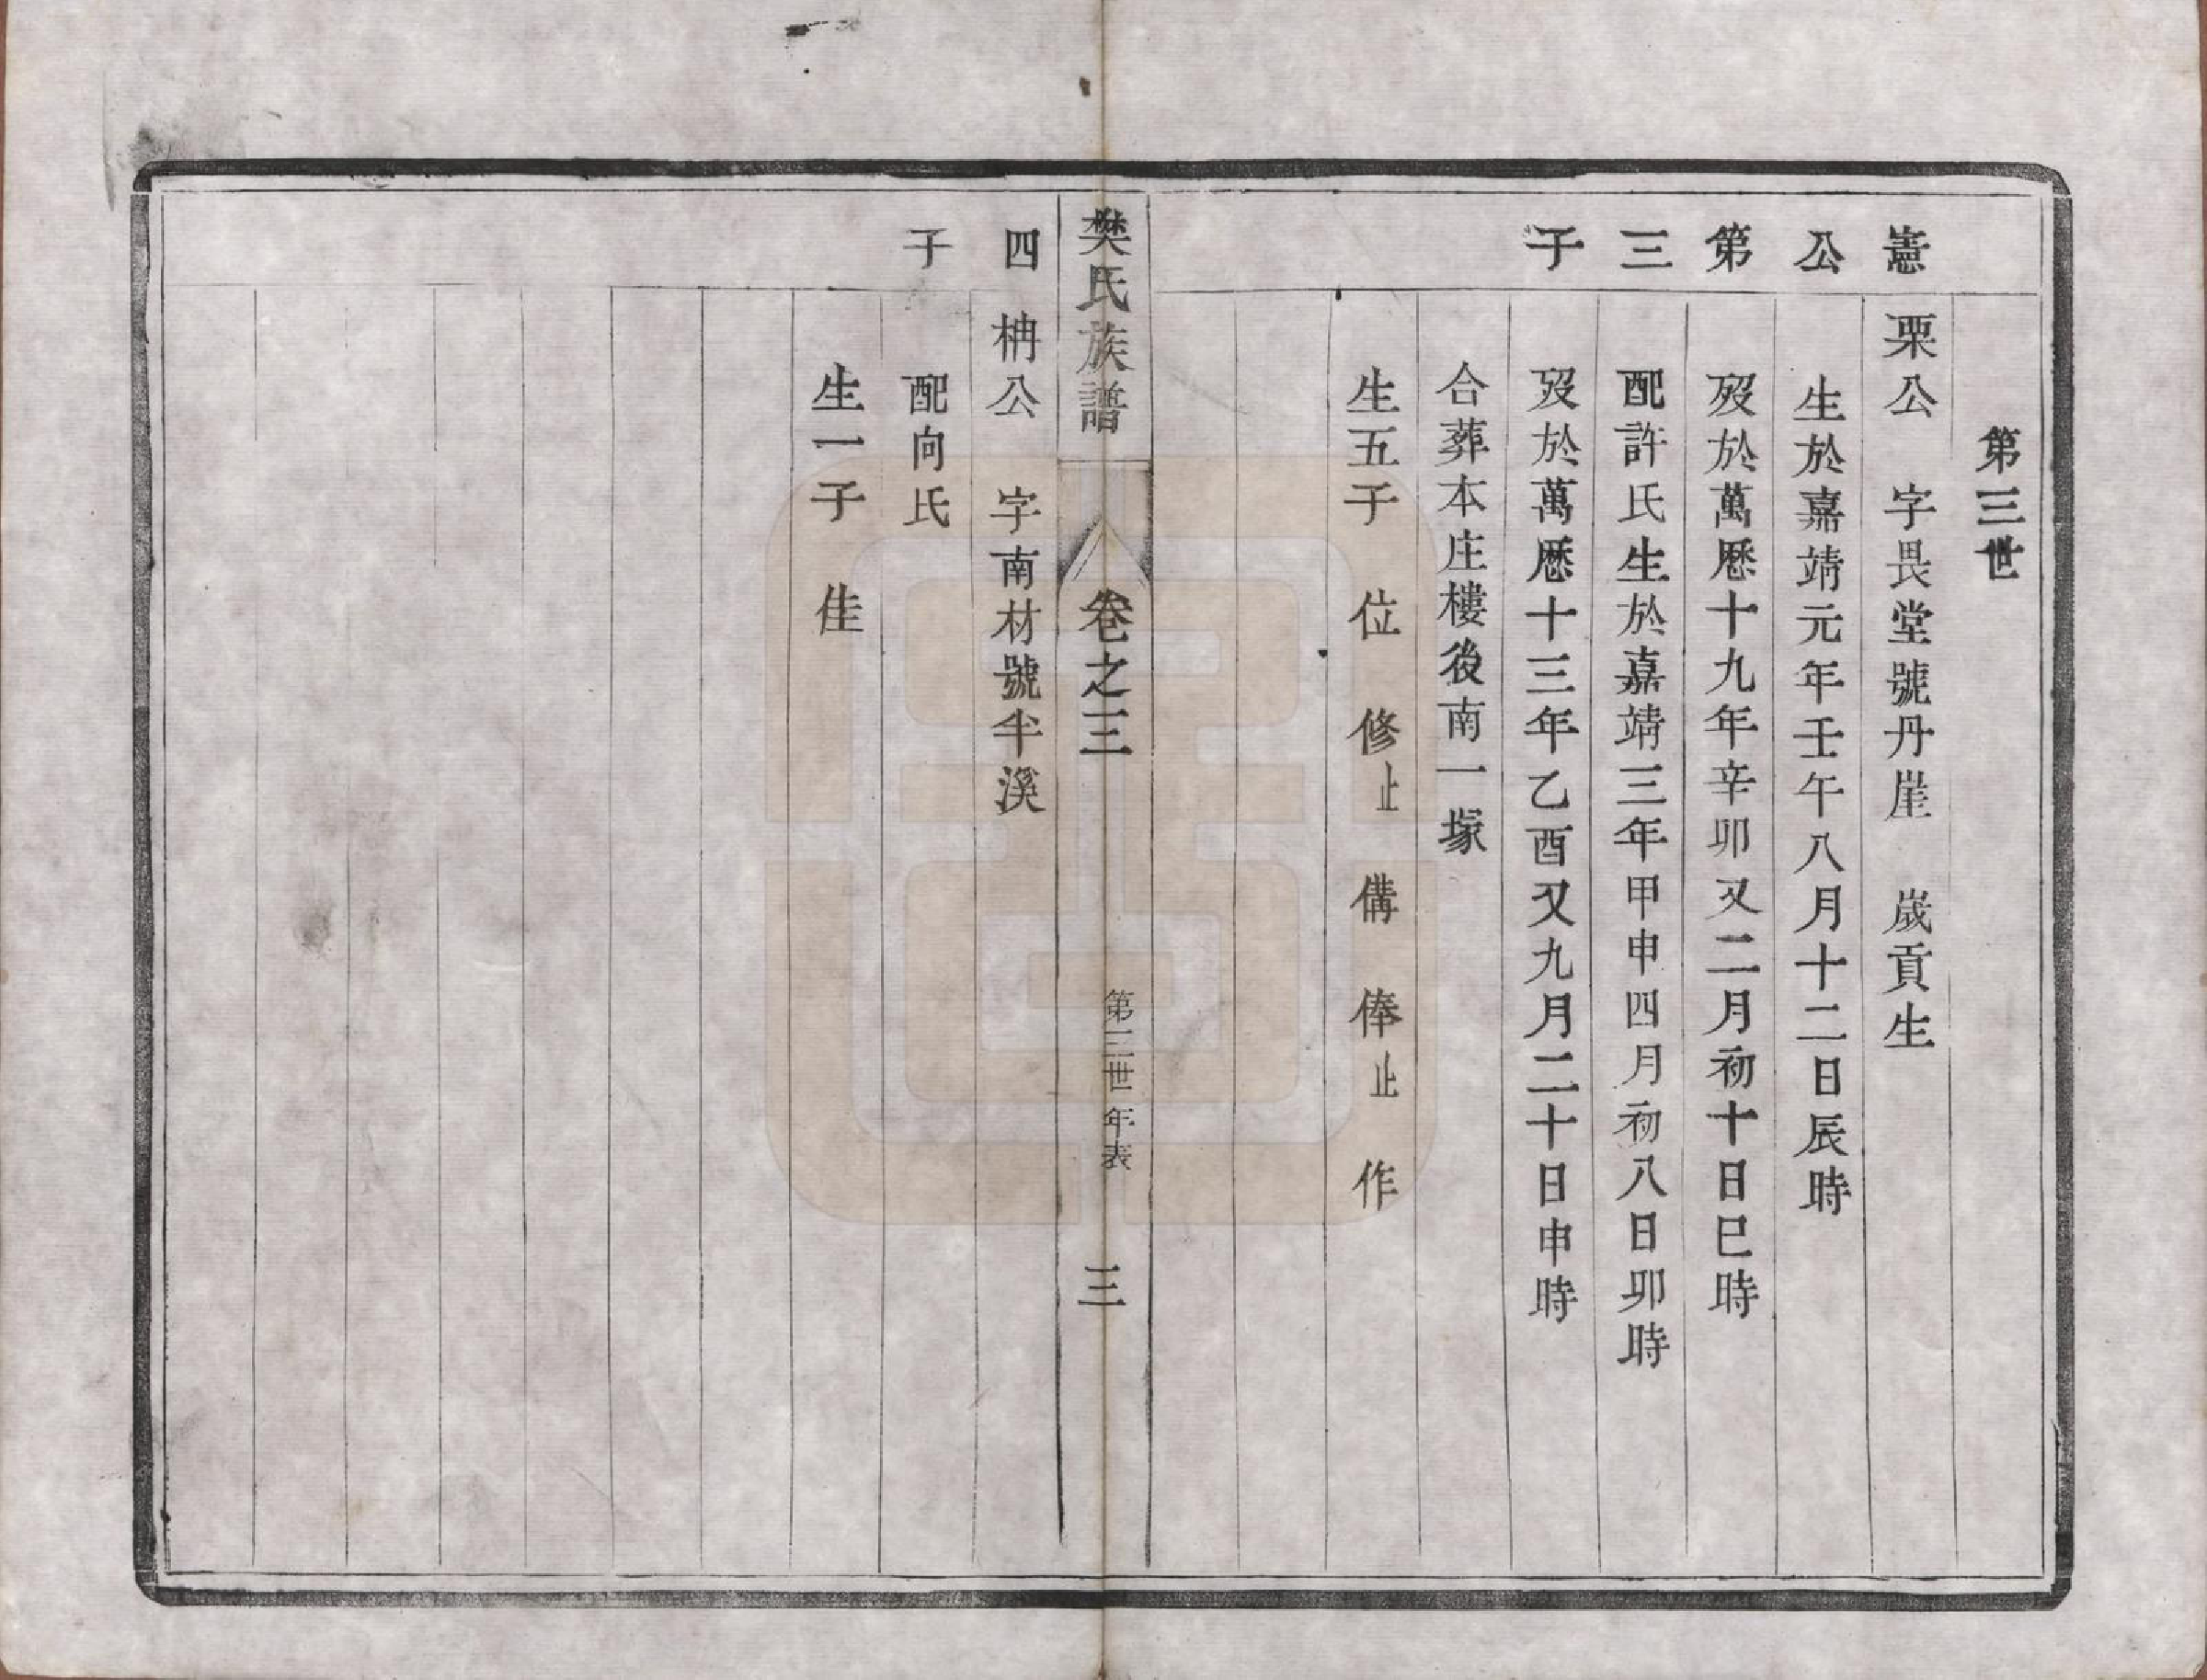 第三世
憲公第三子
栗公　字畏堂號丹崖　歲貢生
生於嘉靖元年壬午八月十二日辰時
歿於萬曆十九年辛卯又二月初十日巳時
配許氏生於嘉靖三年甲申四月初八日卯時
歿於萬曆十三年乙酉又九月二十日申時
合葬本庄樓後南一塚
生五子　位　修止　備　俸止　作
樊氏族譜　卷之三　第三世年表　三
四子
柟公　字南材號半溪
配向氏
生一子　佳